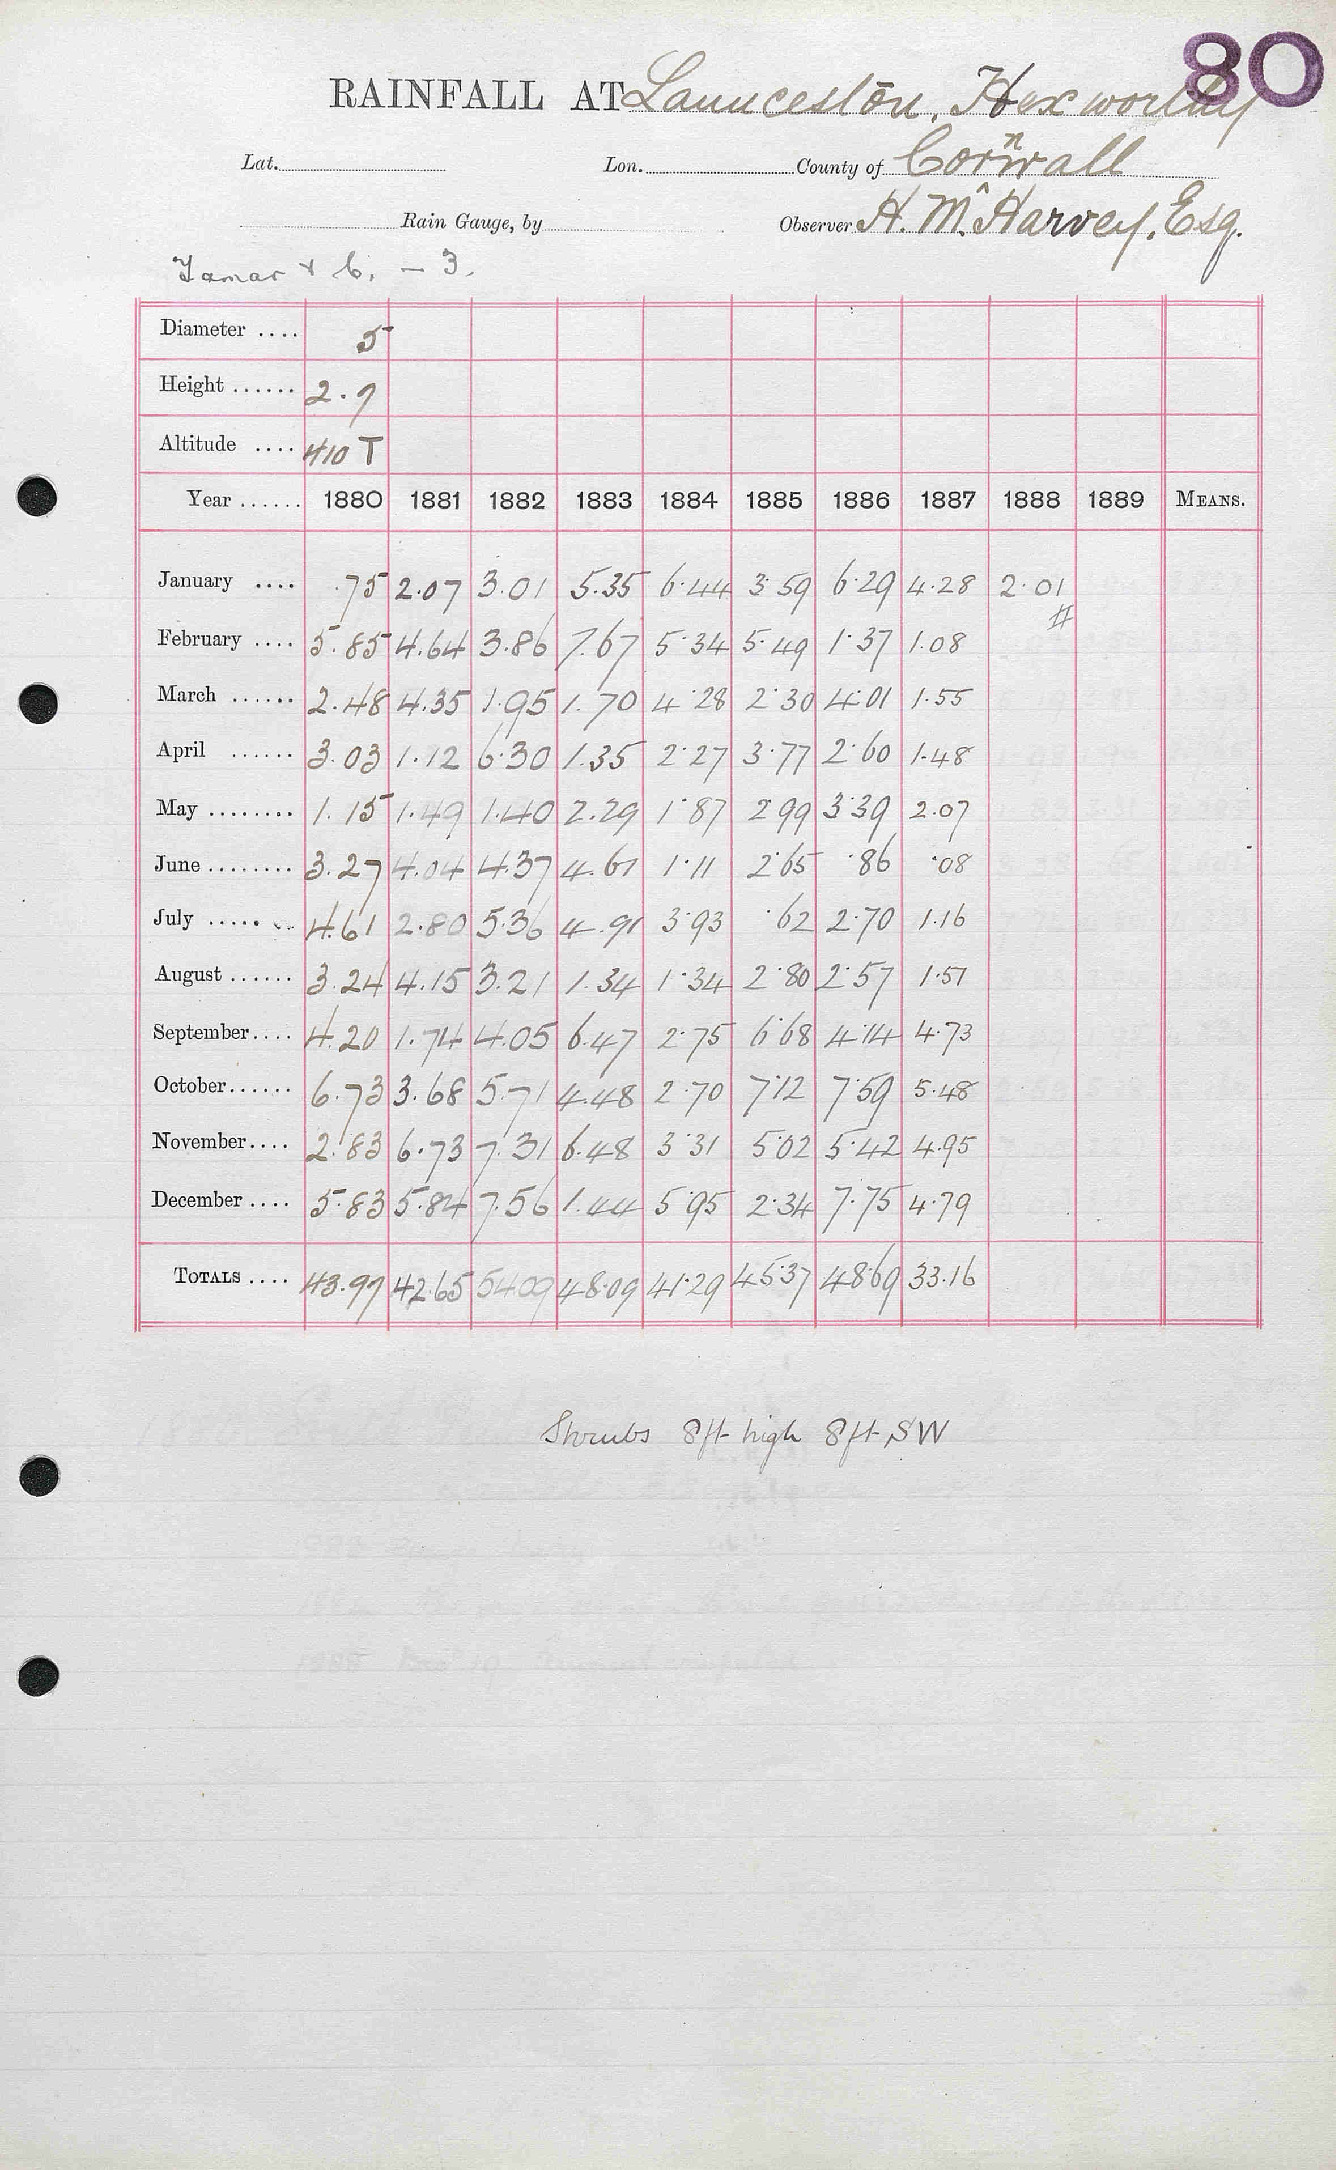 80
RAINFALL AT Launceston, Hexworthy
Lat. Lon. County of Cornwall
Rain Gauge, by Observer H. M. Harvey, Esq.
Tamar & C. — 3.
Diameter .... 5
Height ...... 2.9
Altitude .... 410 T
Year ...... 1880 1881 1882 1883 1884 1885 1886 1887 1888 1889 MEANS.
January .... .75 2.07 3.01 5.35 6.44 3.59 6.29 4.28 2.01 #
February .... 5.85 4.64 3.86 7.67 5.34 5.49 1.37 1.08
March ...... 2.48 4.35 1.95 1.70 4.28 2.30 4.01 1.55
April ...... 3.03 1.12 6.30 1.35 2.27 3.77 2.60 1.48
May ........ 1.15 1.49 1.40 2.29 1.87 2.99 3.39 2.07
June ........ 3.27 4.04 4.37 4.61 1.11 2.65 .86 .08
July ........ 4.61 2.80 5.36 4.91 3.93 .62 2.70 1.16
August ...... 3.24 4.15 3.21 1.34 1.34 2.80 2.57 1.51
September.... 4.20 1.74 4.05 6.47 2.75 6.68 4.14 4.73
October...... 6.73 3.68 5.71 4.48 2.70 7.12 7.59 5.48
November.... 2.83 6.73 7.31 6.48 3.31 5.02 5.42 4.95
December .... 5.83 5.84 7.56 1.44 5.95 2.34 7.75 4.79
TOTALS .... 43.97 42.65 54.09 48.09 41.29 45.37 48.69 33.16
Shrubs 8ft high 8ft SW